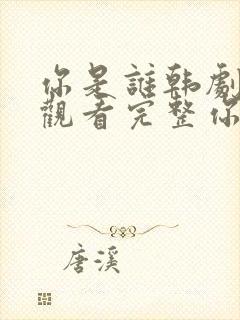 你是誰韓劇
觀看完整你
唐溪